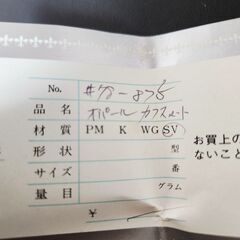 No.
品名 オパール
材質 PM K WG SV
形状 型
サイズ 番
量目 グラム
¥
お買上の
ないこと